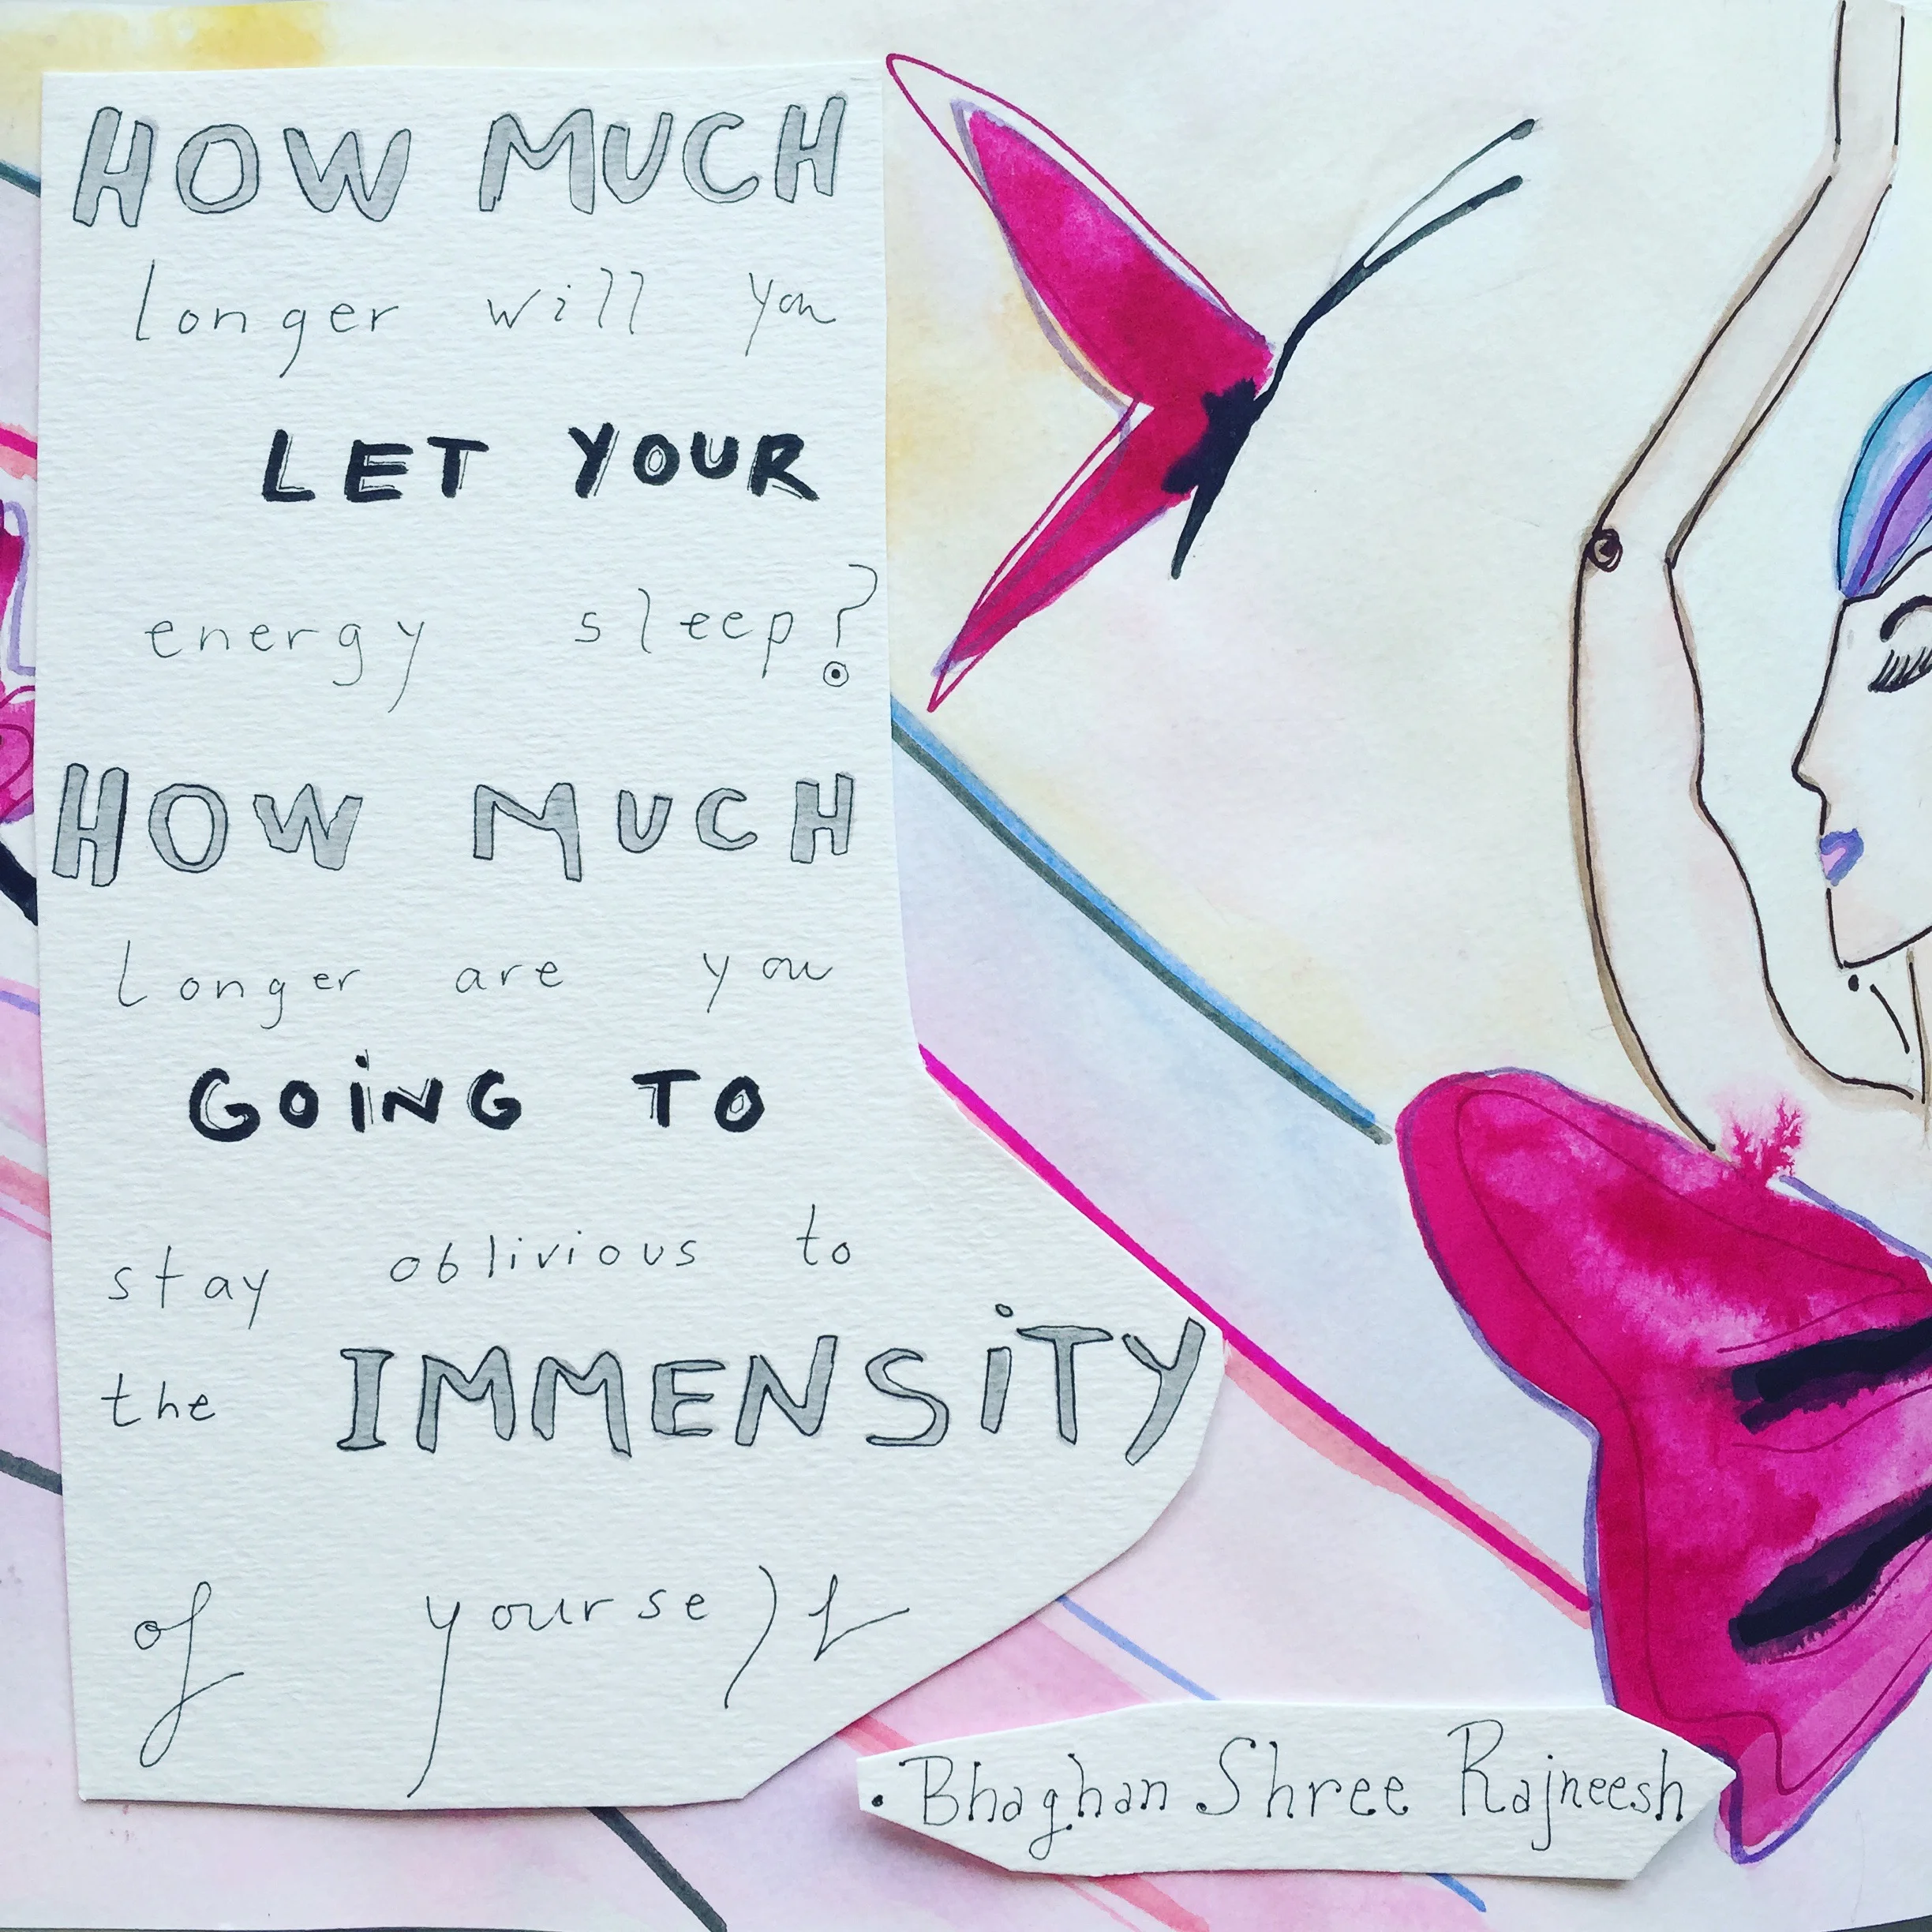 HOW MUCH
longer will you
LET YOUR
energy sleep?
HOW MUCH
longer are you
GOING TO
stay oblivious to
the IMMENSITY
of yourself
• Bhaghan Shree Rajneesh